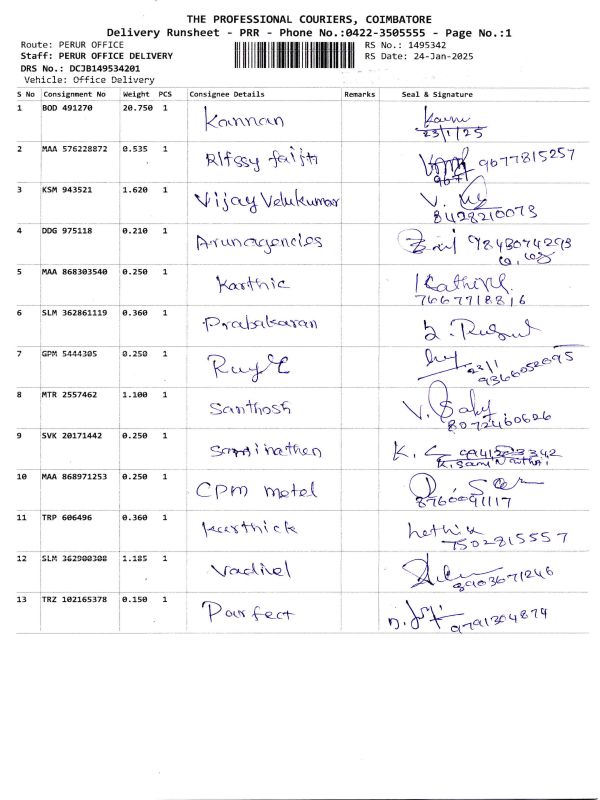 THE PROFESSIONAL COURIERS, COIMBATORE
Delivery Runsheet - PRR - Phone No.:0422-3505555 - Page No.:1
Route: PERUR OFFICE RS No.: 1495342
Staff: PERUR OFFICE DELIVERY RS Date: 24-Jan-2025
DRS No.: DCJB149534201
Vehicle: Office Delivery
S No Consignment No Weight PCS Consignee Details Remarks Seal & Signature
1 BOD 491270 20.750 1 Kannan
23/1/25
2 MAA 576228872 0.535 1 9677815257
9677
3 KSM 943521 1.620 1 Vijay Velukumar V.
8428210073
4 DDG 975118 0.210 1 Arunagencies 9843074293
5 MAA 868303540 0.250 1 Karthic
7667718816
6 SLM 362861119 0.360 1 Prabakaran
7 GPM 5444305 0.250 1 23/1
9366052095
8 MTR 2557462 1.100 1 Santhosh V.
8072460626
9 SVK 20171442 0.250 1 Saminathan K.
10 MAA 868971253 0.250 1 CPM motel
8760091117
11 TRP 606496 0.360 1 Karthick
7502815557
12 SLM 362900308 1.185 1 Vadivel
8903671246
13 TRZ 102165378 0.150 1 Parfect
9791304874